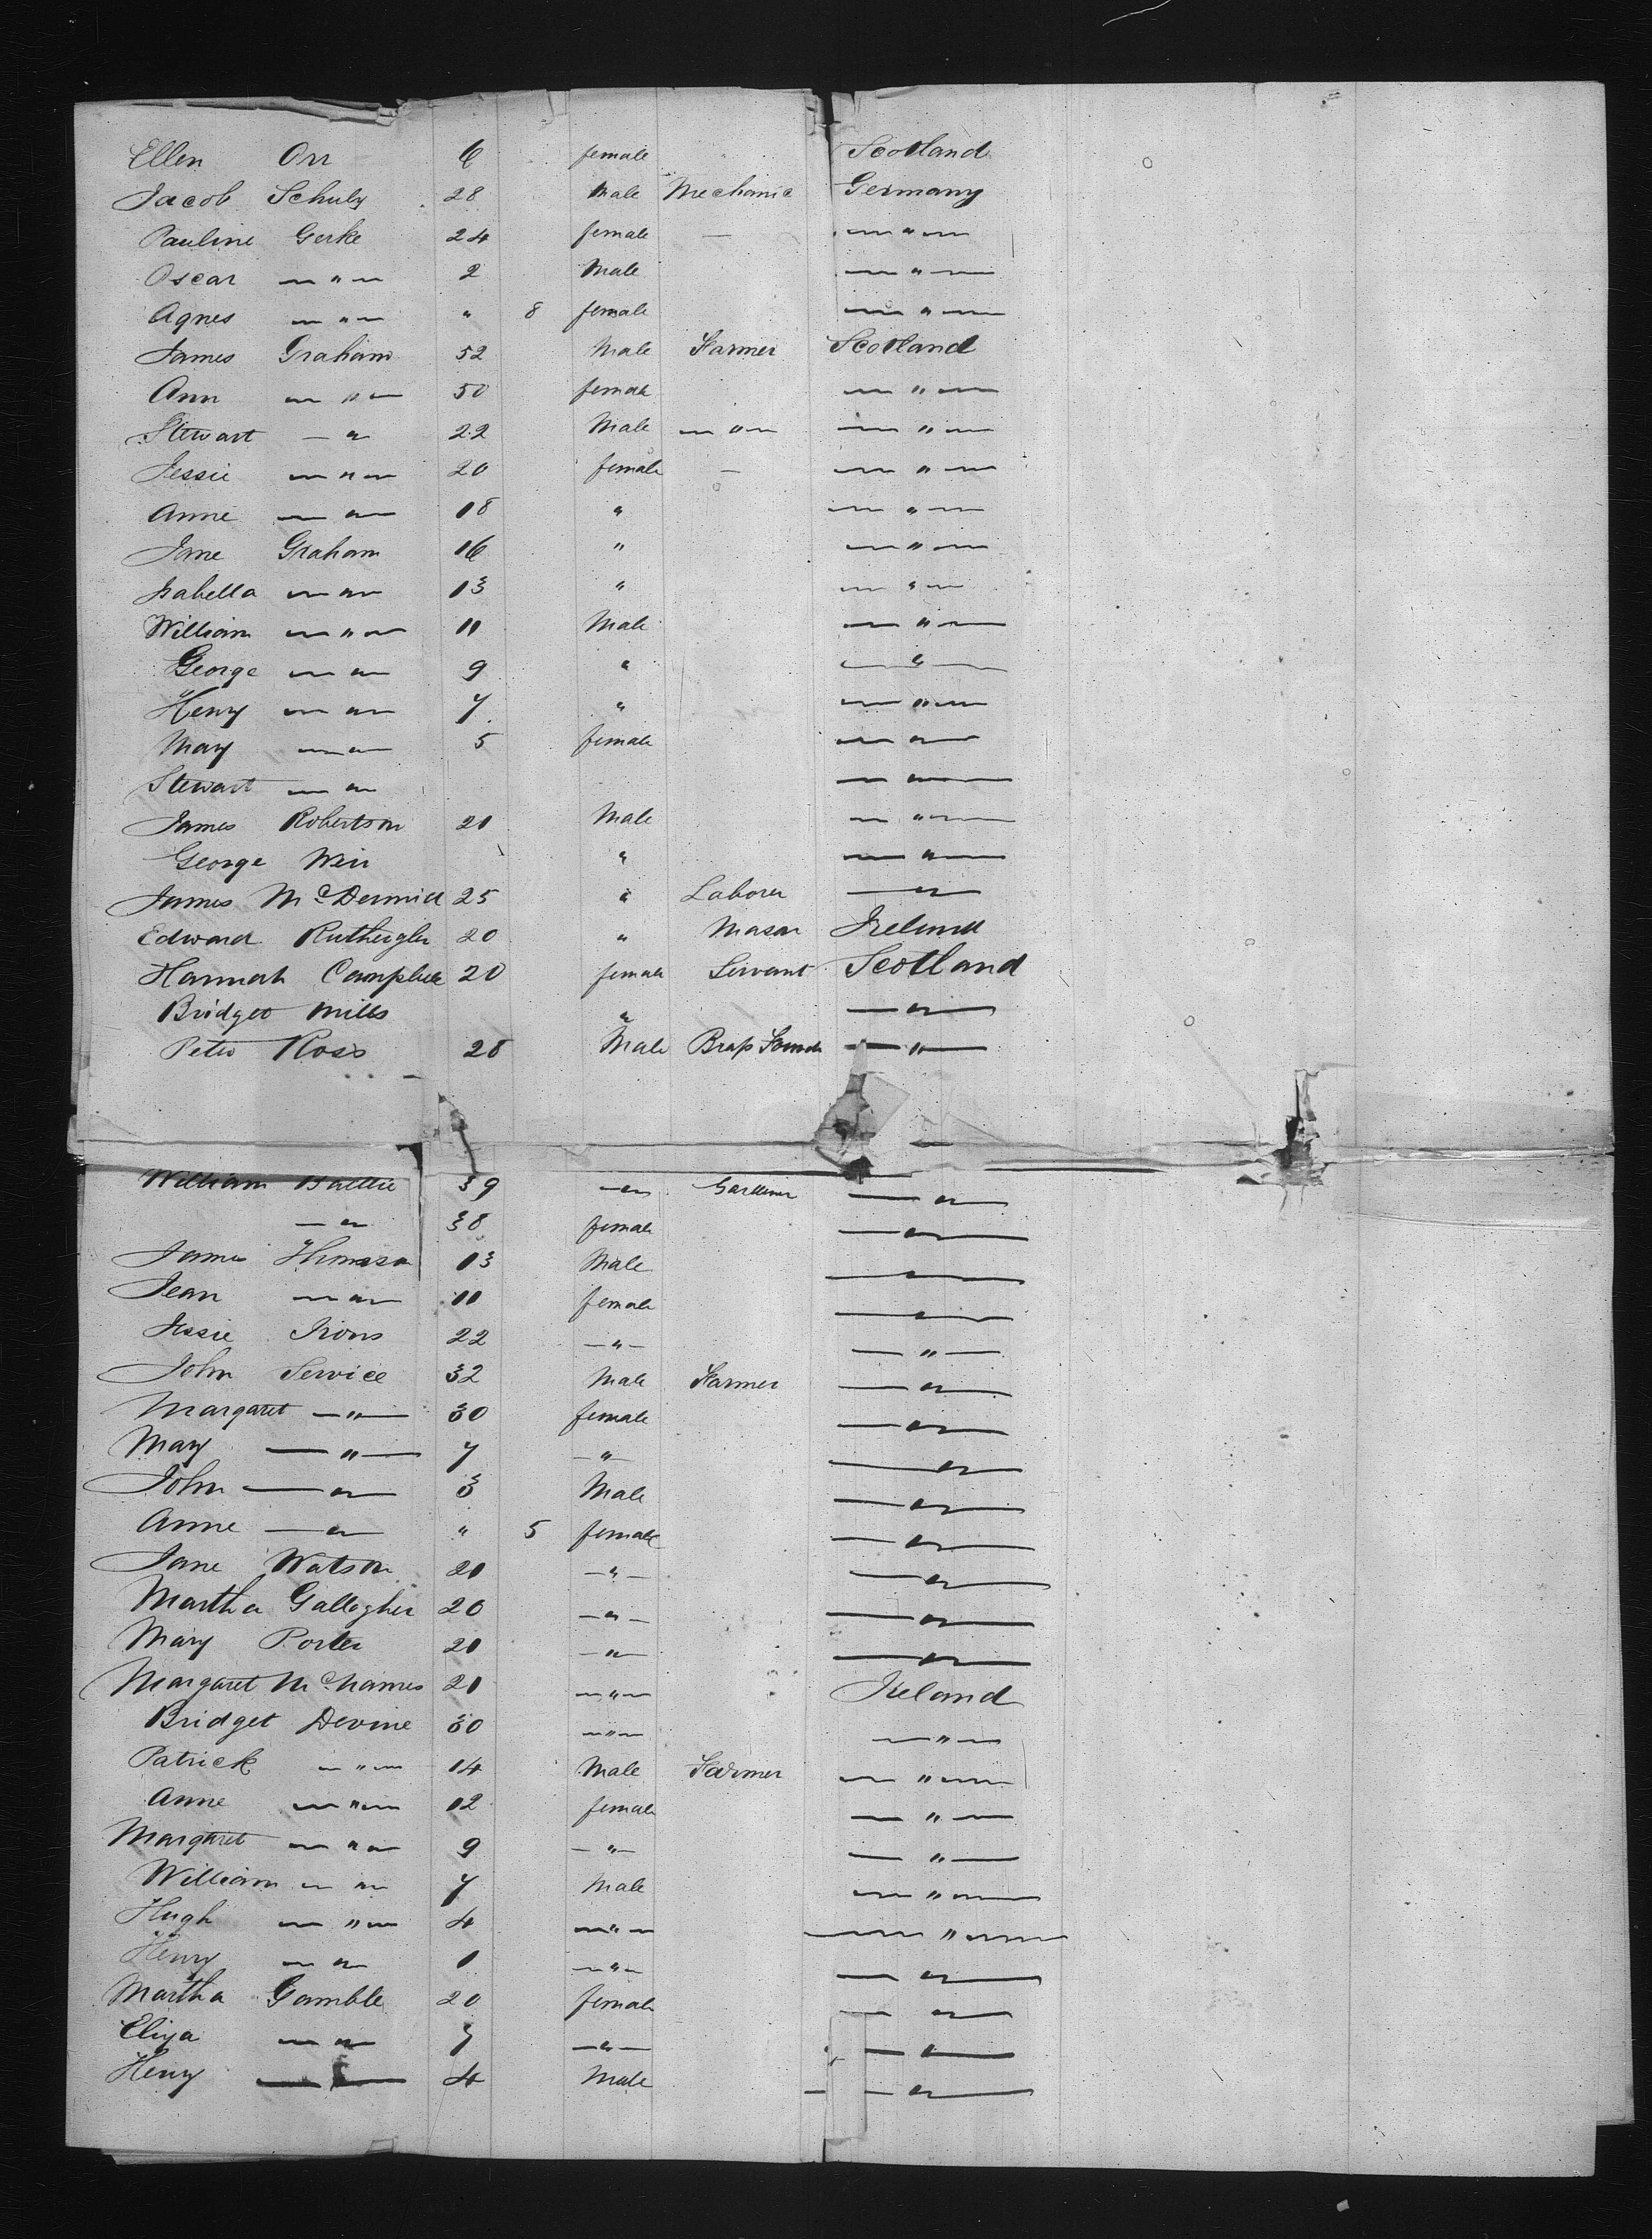 Ellen Orr 6 female Scotland
Jacob Schulz 28 Male Mechanic Germany
Pauline Gerke 24 female — — " —
Oscar — " — 2 Male — " —
Agnes — " — " 8 female — " —
James Graham 52 Male Farmer Scotland
Ann — " — 50 female — " —
Stewart — " 22 Male — " — — " —
Jessie — " — 20 female — — " —
Anne — " — 18 " — " —
Jane Graham 16 " — " —
Isabella — " — 13 " — " —
William — " — 11 Male — " —
George — " — 9 " — " —
Henry — " — 7 " — " —
Mary — " — 5 female — " —
Stewart — " — — " —
James Robertson 21 Male — " —
George Weir " — " —
James McDermid 25 " Laborer — " —
Edward 20 " Mason Ireland
Hannah Campbell 20 female Servant Scotland
Bridget Mills " — " —
Peter Ross 28 Male Brass — " —
William Baillie 39 — " — Gardener — " —
— " — 38 female — " —
James 13 Male — " —
Jean — " — 11 female — " —
Jessie Irons 22 — " — — " —
John Service 32 Male Farmer — " —
Margaret — " — 30 female — " —
Mary — " — 7 — " — — " —
John — " — 3 Male — " —
Anne — " — " 5 female — " —
Jane Watson 21 — " — — " —
Martha Gallagher 20 — " — — " —
Mary Porter 21 — " — — " —
Margaret 21 — " — Ireland
Bridget Devine 30 — " — — " —
Patrick — " — 14 Male Farmer — " —
Anne — " — 12 female — " —
Margaret — " — 9 — " — — " —
William — " — 7 Male — " —
Hugh — " — 4 — " — — " —
Henry — " — 1 — " — — " —
Martha Gamble 20 female — " —
Eliza — " — 7 — " — — " —
Henry — " — 4 Male — " —